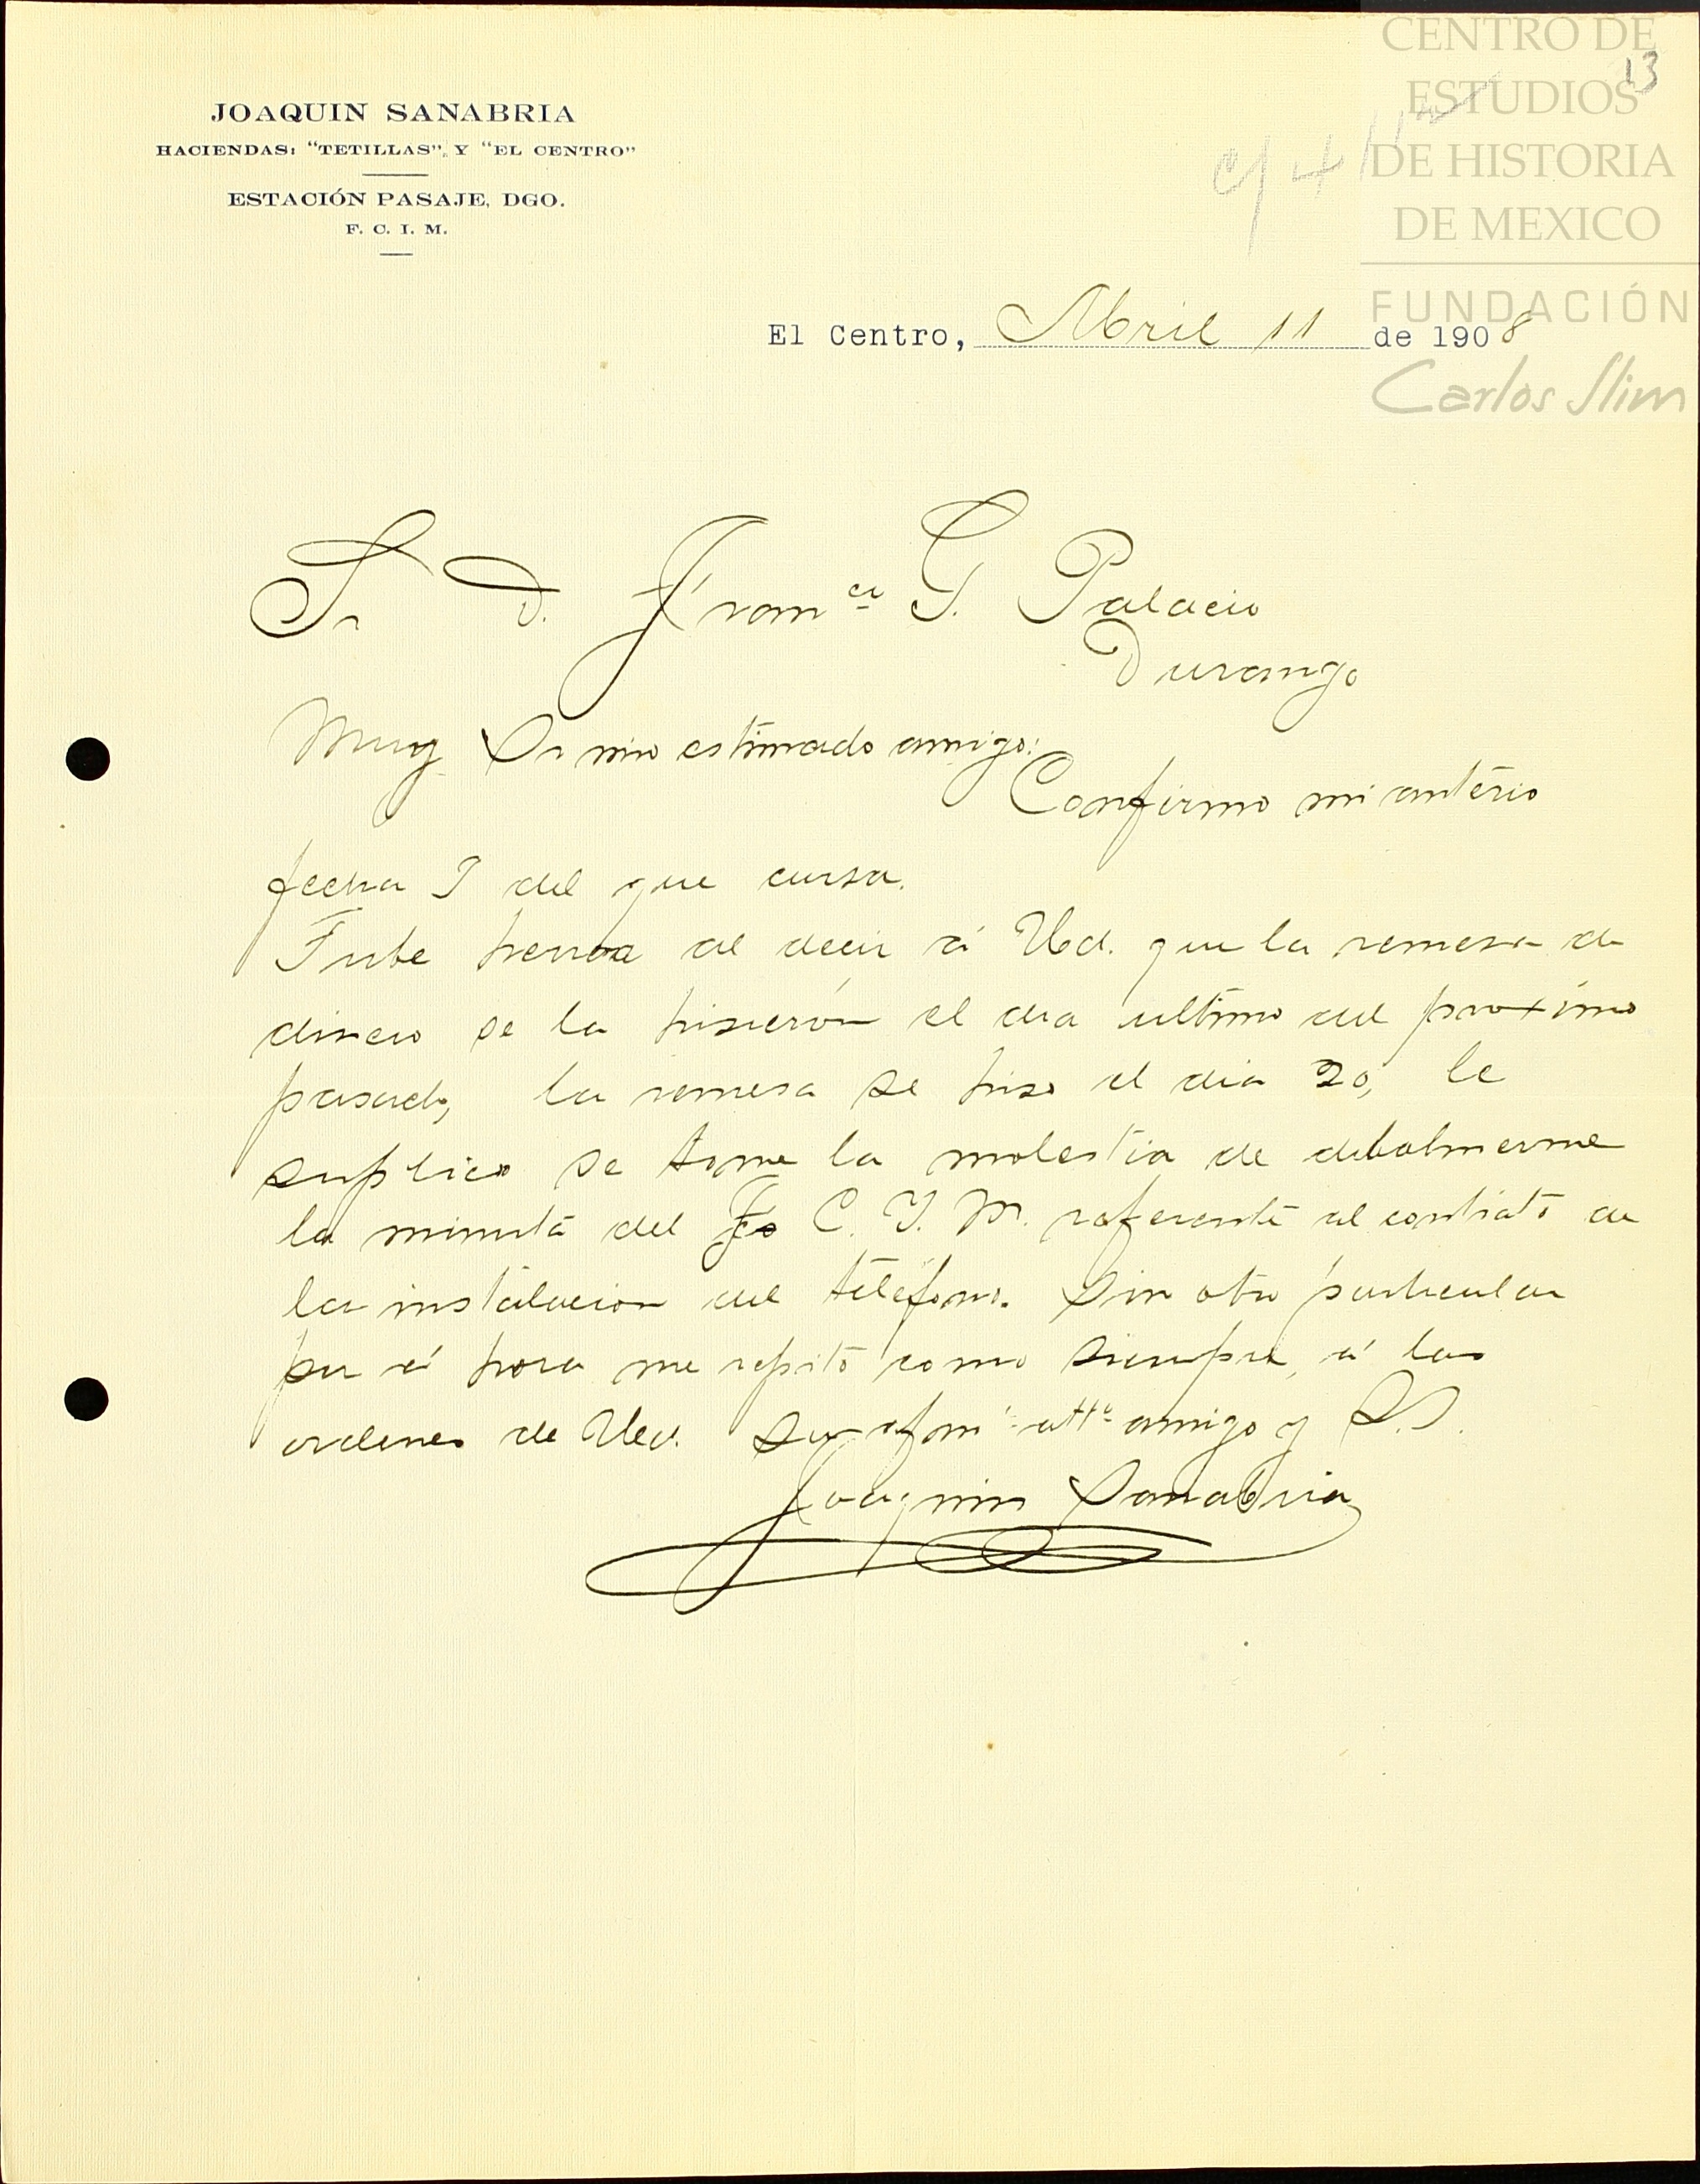 CENTRO DE
ESTUDIOS
DE HISTORIA
DE MEXICO
FUNDACIÓN
Carlos Slim
13
JOAQUIN SANABRIA
HACIENDAS: "TETILLAS", Y "EL CENTRO"
ESTACIÓN PASAJE, DGO.
F. C. I. M.
El Centro, Abril 11 de 1908
Sr D. Franco G. Palacio
Durango
Muy Sr mio estimado amigo:
Confirmo mi anterio
fecha del que cursa.
Tube herroa al decir á Ud. que la remesa de
dinero se la hisierón el dia ultimo del proximo
pasado, la remesa se hiso el dia 20, le
suplico se tome la molestia de debolmerme
la minuta del Fo C. I. M. referente al contrato de
la instalacion del teléfono. Sin otro particular
por á hora me repito como siempre, á las
ordenes de Ud. Su afmo atto amigo y S.S.
Joaquin Sanabria